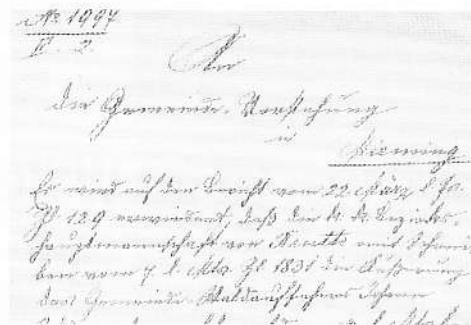 No 1997
II. 2.
An
die Gemeinde-Vorstehung
in
Es wird auf den Bericht vom 22 März d. Js.
Zl 129 erwiedert, daß die k. k. Bezirks-
hauptmannschaft von Reutte mit Schrei-
ben vom 7 d. Mts. Zl 1831 die Äußerung
des Gemeinde-Waldaufsehers